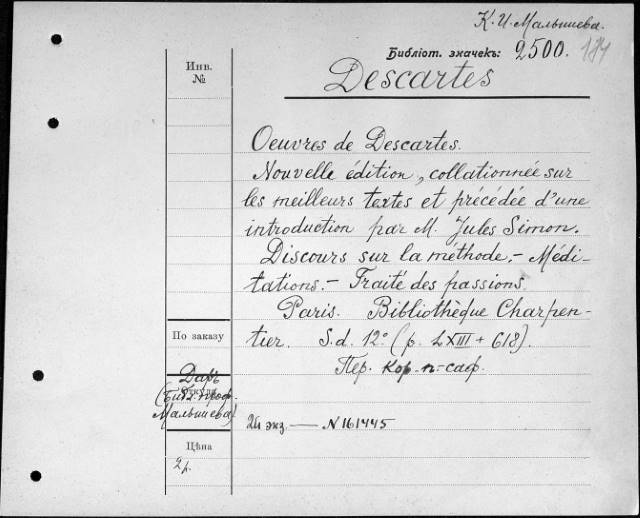 К. И. Малышева.
Библіот. значекъ: 2500. 174
Descartes
Инв.
№
Oeuvres de Descartes.
Nouvelle édition, collationnée sur
les meilleurs textes et précédée d'une
introduction par M. Jules Simon.
Discours sur la méthode. - Médi-
tations. - Traité des passions.
Paris. Bibliothèque Charpen-
tier. S.d. 12° (p. LXIII + 618).
Пер. кор. п-саф.
По заказу
Даръ
Откуда
(Библ. проф.
Малышева)
2й экз. — N 161445
Цѣна
2р.